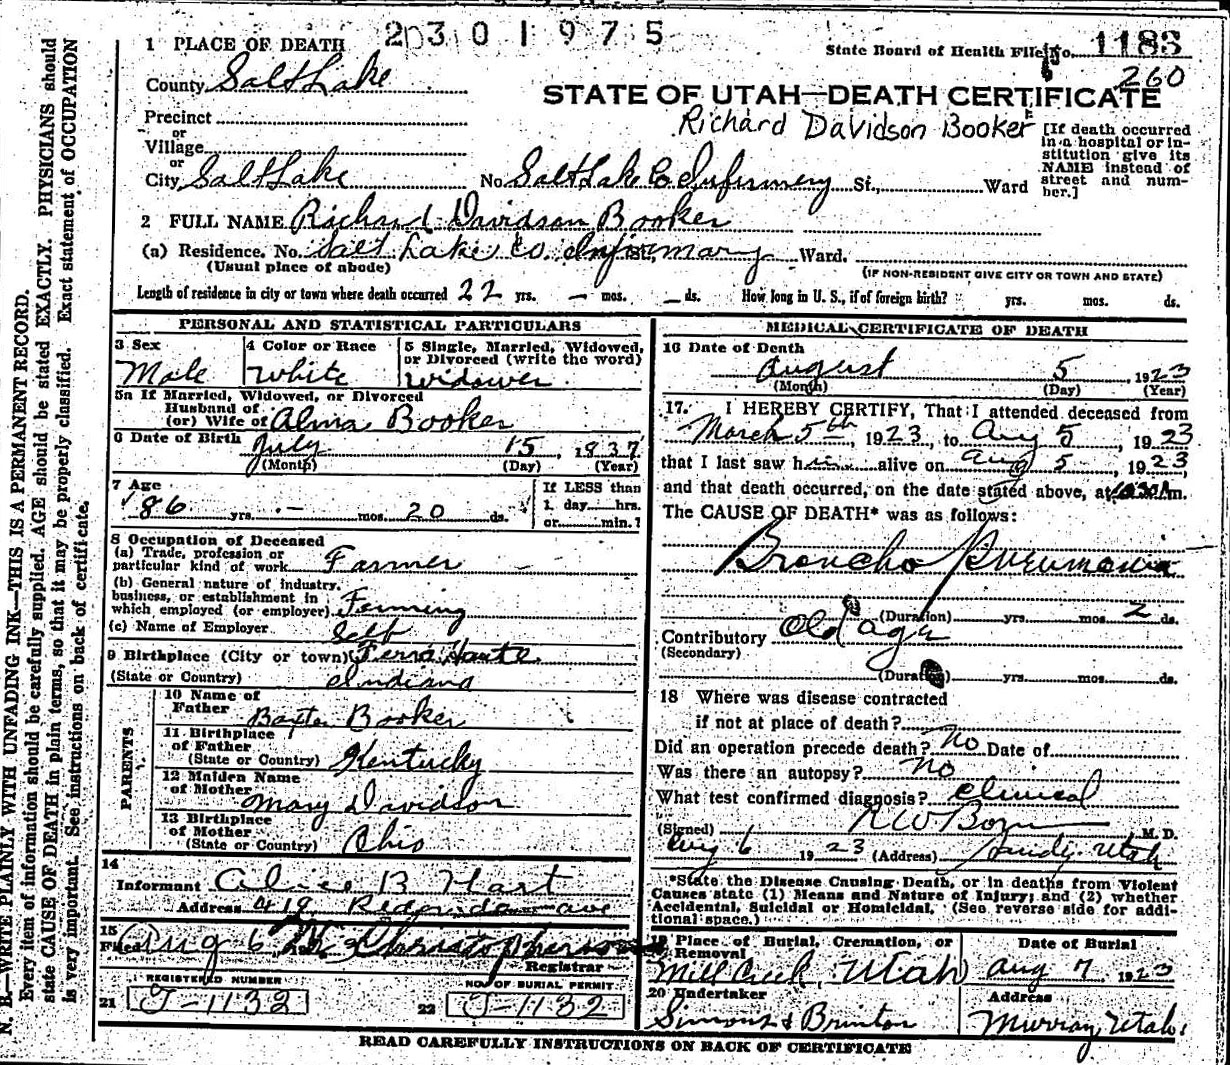 2301975
1 PLACE OF DEATH
State Board of Health File No. 1183
260
County Salt Lake
STATE OF UTAH—DEATH CERTIFICATE
Precinct
Richard Davidson Booker
or
Village
or
City Salt Lake No. Salt Lake Co Infirmery St., Ward
[If death occurred in a hospital or institution give its NAME instead of street and number.]
2 FULL NAME Richard Davidson Booker
(a) Residence. No. Salt Lake Co. Infirmary St., Ward.
(Usual place of abode) (IF NON-RESIDENT GIVE CITY OR TOWN AND STATE)
Length of residence in city or town where death occurred 22 yrs. — mos. — ds. How long in U. S., if of foreign birth? yrs. mos. ds.
PERSONAL AND STATISTICAL PARTICULARS
3 Sex
Male
4 Color or Race
White
5 Single, Married, Widowed, or Divorced (write the word)
Widower
5a If Married, Widowed, or Divorced
Husband of
(or) Wife of Alma Booker
6 Date of Birth
July 15, 1837
(Month) (Day) (Year)
7 Age
86 yrs. — mos. 20 ds.
If LESS than
1 day hrs.
or min.?
8 Occupation of Deceased
(a) Trade, profession or
particular kind of work Farmer
(b) General nature of industry,
business, or establishment in
which employed (or employer) Farming
(c) Name of Employer Self
9 Birthplace (City or town) Terra Haute
(State or Country) Indiana
PARENTS
10 Name of
Father Baxter Booker
11 Birthplace
of Father
(State or Country) Kentucky
12 Maiden Name
of Mother Mary Davidson
13 Birthplace
of Mother
(State or Country) Ohio
14
Informant Alice B Hart
Address 419 ave
15
Filed Aug 6 Christopherson
Registrar
REGISTERED NUMBER
21 J-1132
NO. OF BURIAL PERMIT
22 J-1132
MEDICAL CERTIFICATE OF DEATH
16 Date of Death
August 5, 1923
(Month) (Day) (Year)
17. I HEREBY CERTIFY, That I attended deceased from
March 5th, 1923, to Aug 5 1923
that I last saw him alive on Aug 5, 1923,
and that death occurred, on the date stated above, at m.
The CAUSE OF DEATH* was as follows:
Broncho Pneumonia
(Duration) yrs. mos. 2 ds.
Contributory Old age
(Secondary)
(Duration) yrs. mos. ds.
18 Where was disease contracted
if not at place of death?
Did an operation precede death? No Date of
Was there an autopsy? No
What test confirmed diagnosis? Clinical
(Signed) M. D.
Aug 6 1923 (Address) Sandy, Utah
*State the Disease Causing Death, or in deaths from Violent
Causes state (1) Means and Nature of Injury; and (2) whether
Accidental, Suicidal or Homicidal. (See reverse side for addi-
tional space.)
19 Place of Burial, Cremation, or
Removal
Mill Creek, Utah
Date of Burial
Aug 7 1923
20 Undertaker
Simons & Brinton
Address
Murray, Utah
READ CAREFULLY INSTRUCTIONS ON BACK OF CERTIFICATE
N. B.—WRITE PLAINLY WITH UNFADING INK—THIS IS A PERMANENT RECORD.
Every item of information should be carefully supplied. AGE should be stated EXACTLY. PHYSICIANS should
state CAUSE OF DEATH in plain terms, so that it may be properly classified. Exact statement of OCCUPATION
is very important. See instructions on back of certificate.